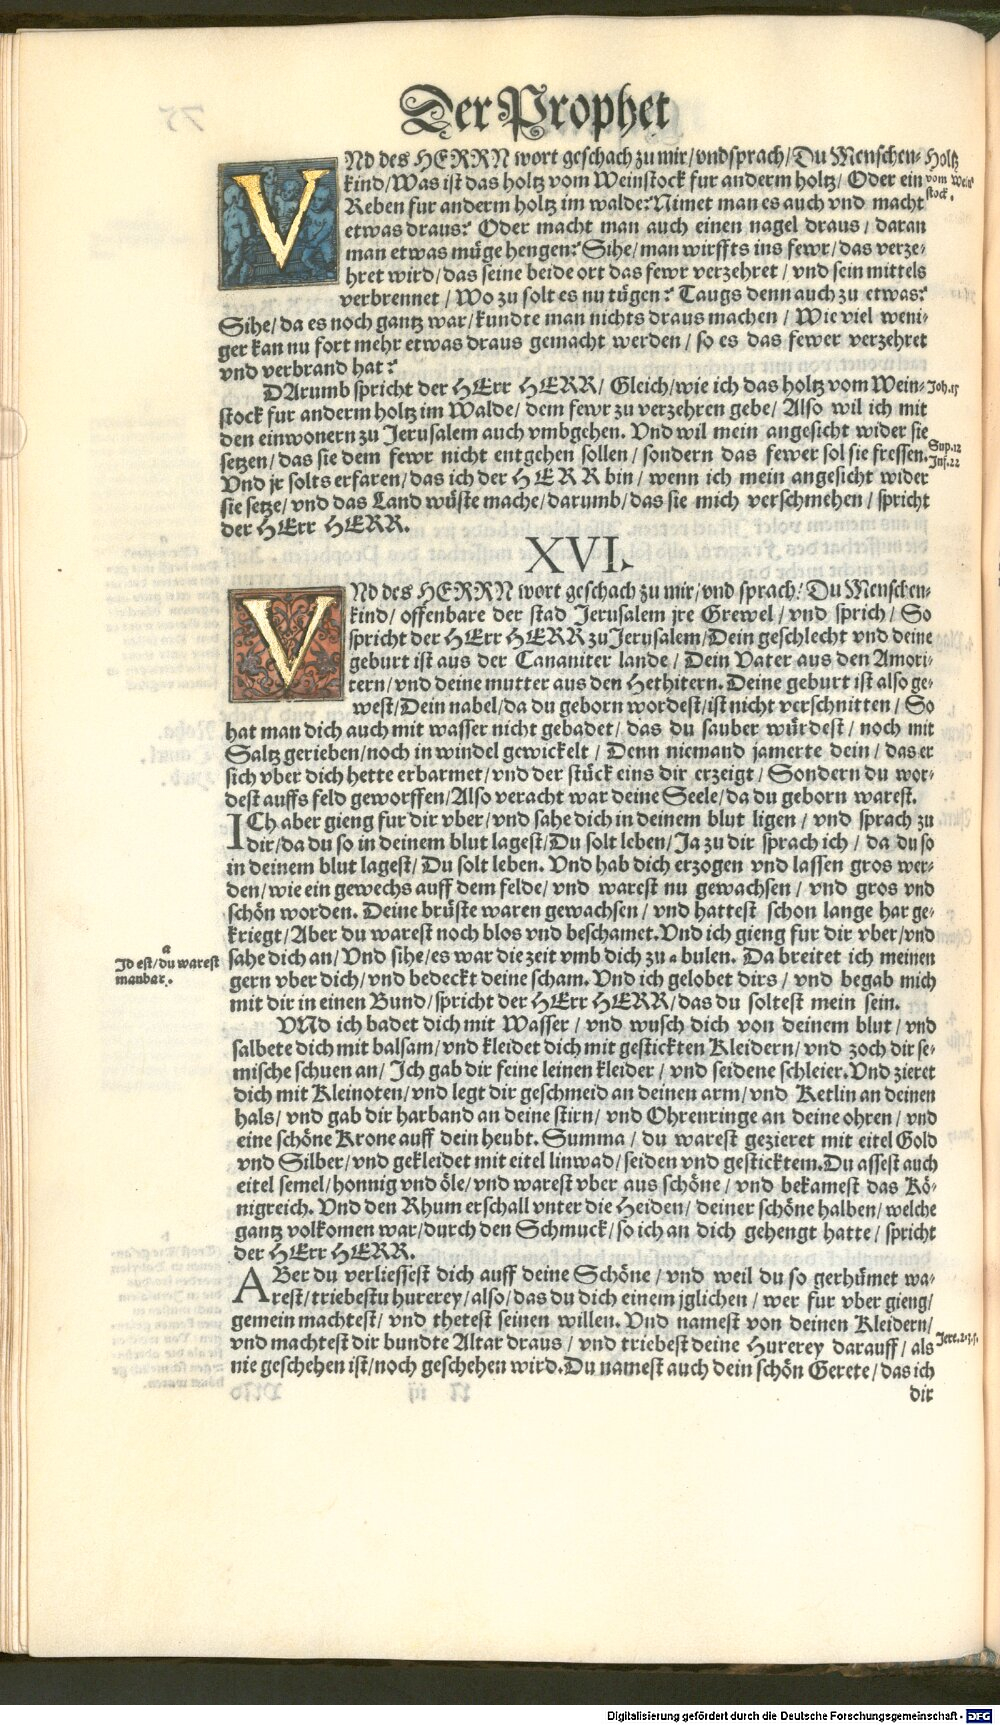 Der Prophet
VNd des HERRN wort geschach zu mir/vnd sprach/Du Menschen-
kind/Was ist das holtz vom Weinstock fur anderm holtz/ Oder ein
Reben fur anderm holtz im walde? Nimet man es auch vnd macht
etwas draus? Oder macht man auch einen nagel draus / daran
man etwas müge hengen? Sihe/man wirffts ins fewr/das verze-
hret wird/das seine beide ort das fewr verzehret / vnd sein mittels
verbrennet / Wo zu solt es nu tügen? Taugs denn auch zu etwas?
Sihe/da es noch gantz war/kundte man nichts draus machen / Wie viel weni-
ger kan nu fort mehr etwas draus gemacht werden / so es das fewer verzehret
vnd verbrand hat?
Holtz
vom Wein
stock.
DArumb spricht der HErr HERR/ Gleich/wie ich das holtz vom Wein-
stock fur anderm holtz im Walde/ dem fewr zu verzehren gebe/ Also wil ich mit
den einwonern zu Jerusalem auch vmbgehen. Vnd wil mein angesicht wider sie
setzen/das sie dem fewr nicht entgehen sollen/ sondern das fewer sol sie fressen.
Vnd jr solts erfaren/das ich der HERR bin/ wenn ich mein angesicht wider
sie setze/ vnd das Land wüste mache/darumb/das sie mich verschmehen / spricht
der HErr HERR.
Joh.15
Sup.12
Inf.22
XVI.
VNd des HERRN wort geschach zu mir/vnd sprach/ Du Menschen-
kind/ offenbare der stad Jerusalem jre Grewel / vnd sprich / So
spricht der HErr HERR zu Jerusalem/Dein geschlecht vnd deine
geburt ist aus der Cananiter lande / Dein Vater aus den Amori-
tern/vnd deine mutter aus den Hethitern. Deine geburt ist also ge-
west/Dein nabel/da du geborn wordest/ist nicht verschnitten / So
hat man dich auch mit wasser nicht gebadet/ das du sauber würdest/ noch mit
Saltz gerieben/noch in windel gewickelt / Denn niemand jamerte dein / das er
sich vber dich hette erbarmet/vnd der stück eins dir erzeigt / Sondern du wor-
dest auffs feld geworffen/Also veracht war deine Seele/da du geborn warest.
ICh aber gieng fur dir vber/vnd sahe dich in deinem blut ligen / vnd sprach zu
dir/da du so in deinem blut lagest/Du solt leben/ Ja zu dir sprach ich / da du so
in deinem blut lagest/ Du solt leben. Vnd hab dich erzogen vnd lassen gros wer-
den/wie ein gewechs auff dem felde/vnd warest nu gewachsen / vnd gros vnd
schön worden. Deine brüste waren gewachsen / vnd hattest schon lange har ge-
kriegt/Aber du warest noch blos vnd beschamet. Vnd ich gieng fur dir vber/vnd
sahe dich an/ Vnd sihe/es war die zeit vmb dich zu a bulen. Da breitet ich meinen
gern vber dich/vnd bedeckt deine scham. Vnd ich gelobet dirs / vnd begab mich
mit dir in einen Bund/spricht der HErr HERR/das du soltest mein sein.
a
Id est/du warest
manbar.
VNd ich badet dich mit Wasser / vnd wusch dich von deinem blut / vnd
salbete dich mit balsam/vnd kleidet dich mit gestickten Kleidern/ vnd zoch dir se-
mische schuen an/ Ich gab dir feine leinen kleider / vnd seidene schleier. Vnd zieret
dich mit Kleinoten/vnd legt dir geschmeid an deinen arm/vnd Ketlin an deinen
hals/ vnd gab dir harband an deine stirn/ vnd Ohrenringe an deine ohren / vnd
eine schöne Krone auff dein heubt. Summa / du warest gezieret mit eitel Gold
vnd Silber/vnd gekleidet mit eitel linwad/seiden vnd gesticktem. Du assest auch
eitel semel/honnig vnd öle/vnd warest vber aus schöne / vnd bekamest das Kö-
nigreich. Vnd den Rhum erschall vnter die Heiden/ deiner schöne halben/welche
gantz volkomen war/durch den Schmuck/so ich an dich gehengt hatte / spricht
der HErr HERR.
ABer du verliessest dich auff deine Schöne / vnd weil du so gerhümet wa-
rest/triebestu hurerey/also/das du dich einem jglichen / wer fur vber gieng/
gemein machtest/ vnd thetest seinen willen. Vnd namest von deinen Kleidern/
vnd machtest dir bundte Altar draus / vnd triebest deine Hurerey darauff/ als
nie geschehen ist/noch geschehen wird. Du namest auch dein schön Gerete/das ich
dir
Digitalisierung gefördert durch die Deutsche Forschungsgemeinschaft - DFG